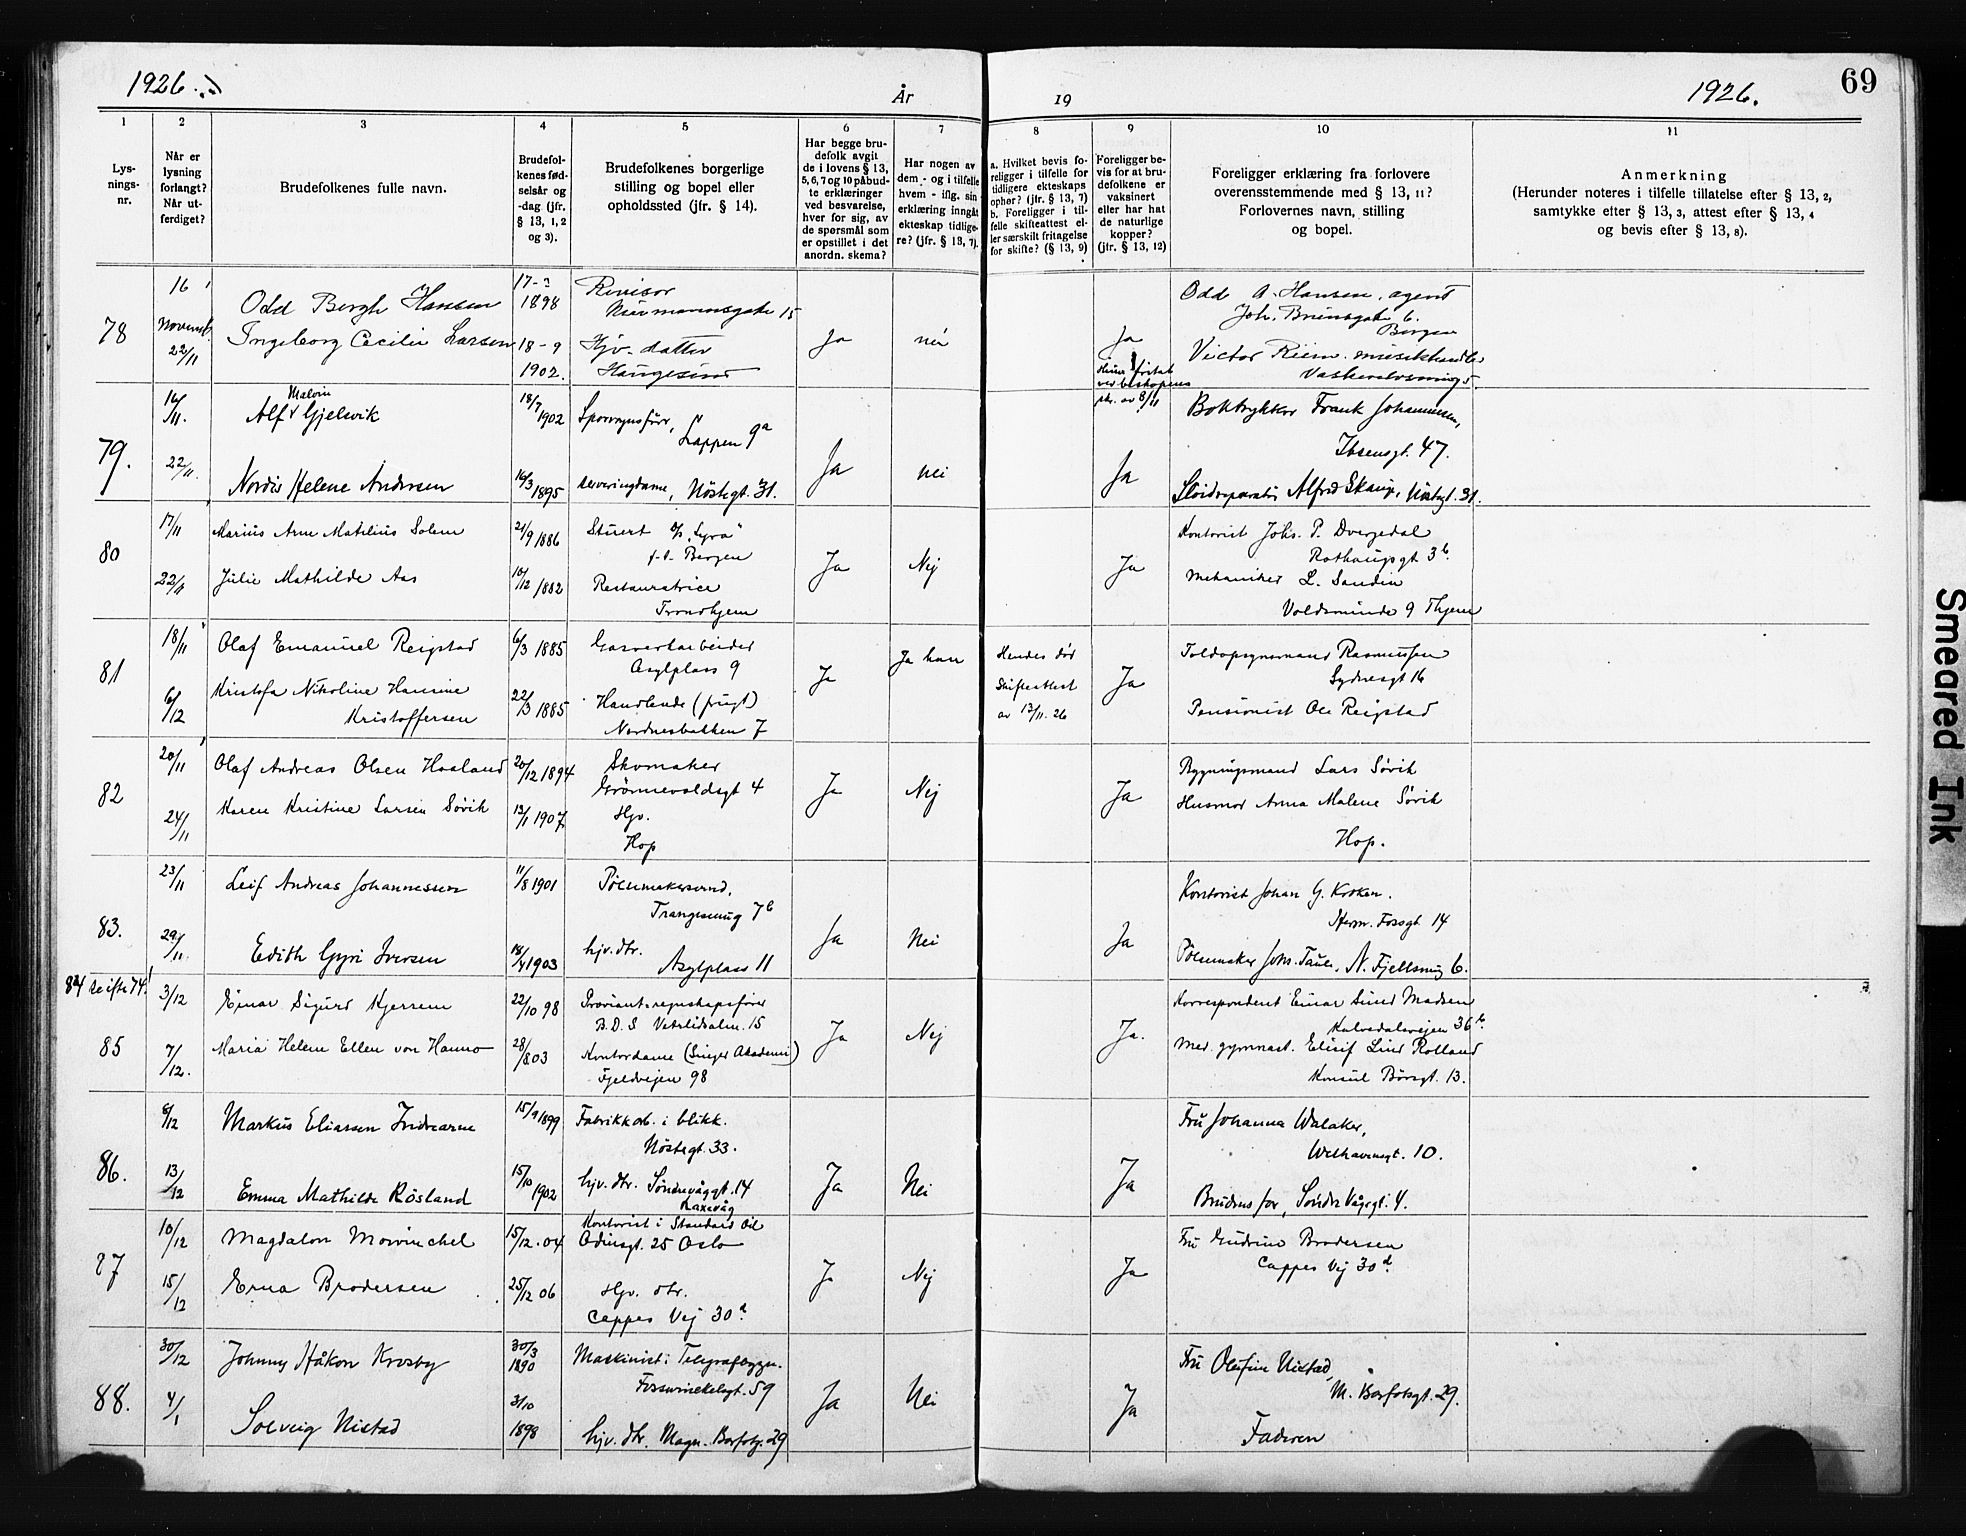 1926.
År
19
1926.
69
1
2
3
4
5
6
7
8
9
10
11
Lys-
nings-
nr.
Når er
lysning
forlangt?
Når ut-
ferdiget?
Brudefolkenes fulle navn.
Brudefol-
kenes fød-
selsår og
-dag (jfr.
§ 13, 1, 2
og 3).
Brudefolkenes borgerlige
stilling og bopel eller
opholdssted (jfr. § 14).
Har begge bru-
defolk avgit
de i lovens § 13,
5, 6, 7 og 10 påbud-
te erklæringer
ved besvarelse,
hver for sig, av
de spørsmål som
er opstillet i det
anordn. skema?
Har nogen av
dem - og i tilfelle
hvem - iflg. sin
erklæring inngåt
ekteskap tidlige-
re? (jfr. § 13, 7).
a. Hvilket bevis fo-
religger i tilfelle for
tidligere ekteskaps
ophør? (jfr. § 13, 7)
b. Foreligger i til-
felle skifteattest el-
ler særskilt fritagelse
for skifte? (§ 13, 9)
Foreligger be-
vis for at bru-
defolkene er
vaksinert
eller har hat
de naturlige
kopper?
(jfr. § 13, 12)
Foreligger erklæring fra forlovere
overensstemmende med § 13, 11?
Forlovernes navn, stilling
og bopel.
Anmerkning
(Herunder noteres i tilfelle tillatelse efter § 13, 2,
samtykke efter § 13, 3, attest efter § 13, 4
og bevis efter § 13, 8).
78
16
Novemb.
22/11
Odd Bergh Hansen
Ingeborg Cecilie Larsen
1898
18-9
1902.
Revisor
15
Hjv. datter
Haugesund
Ja
nei
Ja
av 8/11
Odd A. Hansen, agent
Joh. Brunsgate 6.
Bergen
Victor Riim musikhandler
79.
16/11.
22/11.
Malvin
Alf Gjelsvik
Nordis Helene Andersen
18/7 1902
16/3 1895
Lappen 9a
serveringdame, Nöstegt. 31.
Ja
Nei
Ja
Boktrykker Frank Johannesen,
Ibsensgt. 47.
Alfred Skauge, Nöstegt. 31.
80
17/11
22/11
Marius Arne Matelius Solem
Julie Mathilde Aas
21/9 1886
10/12 1882
Stuert D/S "Lyra"
f.t. Bergen
Restauratrice
Trondhjem
Ja
Nej
Ja
Kontorist Johs. P. Dvergedal
Rothaugsgt 3b.
Mekaniker L. Sandin
Voldsminde 9 Thjem
81
18/11
6/12
Olaf Emanuel Reigstad
Kristofa Nikoline Hansine
Kristoffersen
6/3 1885
22/3 1885
Gasverkarbeider
Asylplass 9
Handlende (frugt)
Nordnesbakken 7
Ja
Ja hun
Hendes död
Skifteattest
av 13/11. 26
Ja
Toldopsynsmand Rasmussen
Sydnesgt 16
Pensionist Ole Reigstad
82
20/11
24/11
Olaf Andreas Olsen Haaland
Karen Kristine Larsen Sövik
20/12 1894
12/1 1907
Skomaker
Grönnevoldsgt 4
Hjv.
Hop
Ja
Nej
Ja
Bygningsmand Lars Sövik
Husmor Anna Malene Sövik
Hop.
83.
23/11
29/11.
Leif Andreas Johannessen
Edith Gyri Iversen
11/8 1901
18/4 1903
Pölsemakersvend,
Trangesmug 7b
hjv. dtr.
Asylplass 11
Ja
Nei
Ja
Kontorist Johan G. Kroken.
Herm. Fossgt 14
Pölsemaker Johs. Taule, N. Fjellsmug 6.
84 se efter 74!
85
3/12
7/12.
Einar Sigurd Kjersem
Maria Helene Ellen von Hanno
22/10 98
28/8 03
Proviant-regnskapsförer
B.D.S Vetrlidsalm. 15
Kontordame (Singer Akademi)
Fjeldveien 98
Ja
Nej
Ja.
Korrespondent Einar Lind Madsen
Kalvedalsveien 36b.
Med. gymnast. Elisif Lind Rolland
Konsul Börsgt. 13.
86.
8/12
13/12
Markus Eliassen Indrearne
Emma Mathilde Rösland
15/9 1899
15/10 1902
Fabrikkarb. i blikk.
Nöstegt. 33.
hjv. dtr. Söndrevåggt. 14
Laxevåg
Ja
Nei
Ja
Fru Johanna Walaker,
Welhavensgt. 10.
Brudens far, Söndre Vågegt. 4.
87
10/12
15/12
Magdalon Mowinckel
Erna Brodersen
15/12. 04
25/12 06
Kontorist i Standard Oil
Odinsgt. 25 Oslo
Hjv. dtr.
Cappes Vej 30d.
Ja
Nej
Ja
Fru Gudrun Brodersen
Cappes Vej 30d.
88.
30/12
4/1
Johnny Håkon Krosby
Solveig Nistad
30/3
1890
3/10
1898
Maskinist i Telegrafbygn.
Fosswinckelsgt. 59
hjv. dtr. Magn. Barfotsg. 29
Ja
Nei
Ja
Fru Olufine Nistad,
M. Barfotsgt. 29.
Faderen
Smeared Ink